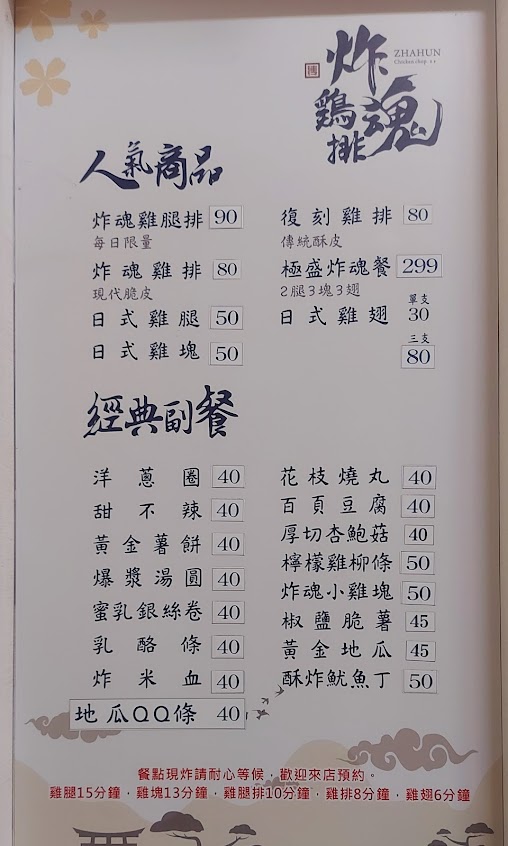 炸魂
雞排
ZHAHUN
Chicken chop
人氣商品
炸魂雞腿排 90
每日限量
炸魂雞排 80
現代脆皮
日式雞腿 50
日式雞塊 50
復刻雞排 80
傳統酥皮
極盛炸魂餐 299
2腿3塊3翅
日式雞翅 單支 30
三支 80
經典副餐
洋蔥圈 40
甜不辣 40
黃金薯餅 40
爆漿湯圓 40
蜜乳銀絲卷 40
乳酪條 40
炸米血 40
地瓜QQ條 40
花枝燒丸 40
百頁豆腐 40
厚切杏鮑菇 40
檸檬雞柳條 50
炸魂小雞塊 50
椒鹽脆薯 45
黃金地瓜 45
酥炸魷魚丁 50
餐點現炸請耐心等候，歡迎來店預約。
雞腿15分鐘，雞塊13分鐘，雞腿排10分鐘，雞排8分鐘，雞翅6分鐘